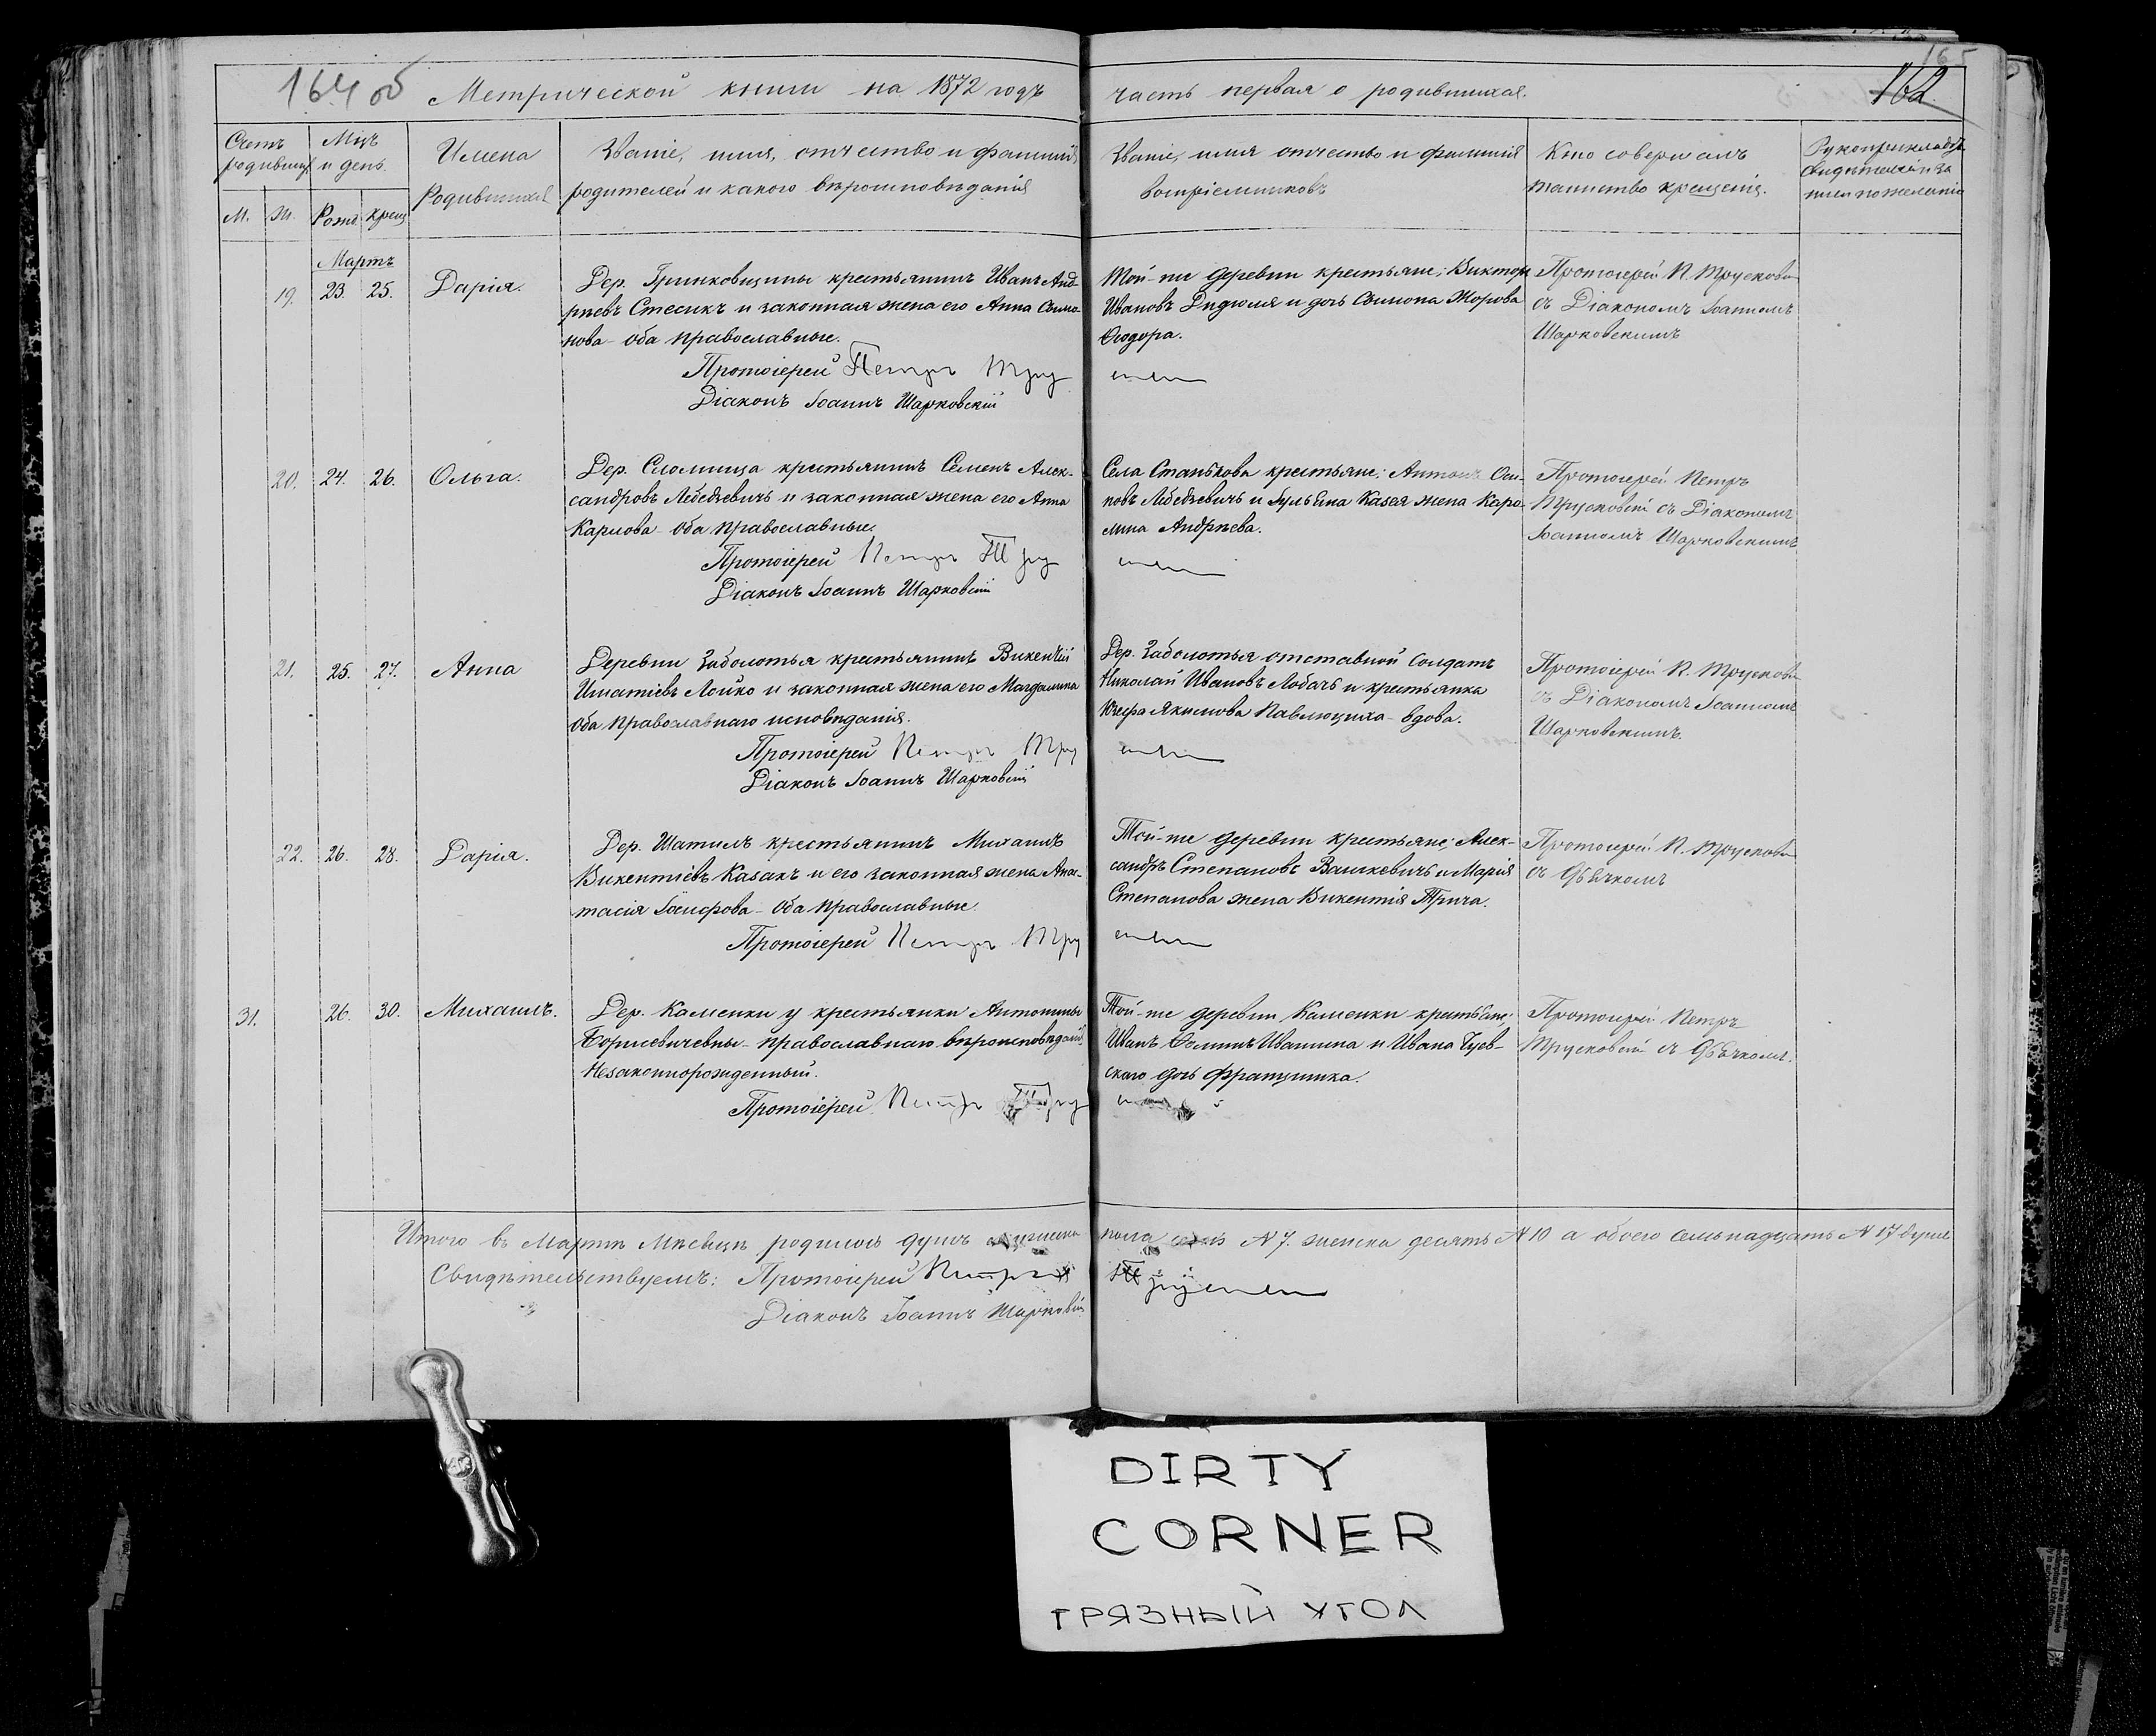 164 об Метрической книги на 1872 годъ часть первая о родившихся. 162 165
Счетъ родившихъ
Мцъ и день.
Имена Родившихся
Званіе, имя, отчество и фамилія родителей и какого вѣроисповѣданія
Званіе, имя отчество и фамилія воспріемниковъ
Кто совершалъ таинство крещенія.
Рукоприкладст. свидѣтелей и за писи по желанію
М. Ж. Рожд. Крещ.
Мартъ
19. 23. 25. Дарія.
Дер. Гринковщины крестьянинъ Иванъ Анд-
рѣевъ Стесикъ и законная жена его Анна Симо-
нова - оба православные.
Протоіерей Петръ
Діаконъ Іоаннъ Шарковскій
Той-же деревни крестьяне; Викторъ
Ивановъ Дидюля и дочь Симона Жорова
Ѳеодора.
Протоіерей П. Трусковскій
съ Діакономъ Іоанномъ
Шарковскимъ
20. 24. 26. Ольга.
Дер. Сломища крестьянинъ Семенъ Алек-
сандровъ Лебедзевичъ и законная жена его Анна
Карлова - оба православные.
Протоіерей Петръ
Діаконъ Іоаннъ Шарковскій
Села Станькова крестьяне: Антонъ Оси-
повъ Лебедзевичъ и Казея жена Каро-
лина Андрѣева.
Протоіерей Петръ
Трусковскій съ Діакономъ
Іоанномъ Шарковскимъ
21. 25. 27. Анна
Деревни Заболотья крестьянинъ Викентій
Игнатіевъ Лойко и законная жена его Магдалина
оба православнаго исповѣданія.
Протоіерей Петръ
Діаконъ Іоаннъ Шарковскій
Дер. Заболотья отставной Солдатъ
Николай Ивановъ Лобачъ и крестьянка
Юзефа Якимова Павлющиха - вдова.
Протоіерей П. Трусковскій
съ Діакономъ Іоанномъ
Шарковскимъ.
22. 26. 28. Дарія.
Дер. Шатилъ крестьянинъ Михаилъ
Викентіевъ Казакъ и его законная жена Анас-
тасія Іосифова - оба православные.
Протоіерей Петръ
Той-же деревни крестьяне; Алек-
сандръ Степановъ Вашкевичъ и Марія
Степанова жена Викентія Трича.
Протоіерей П. Трусковскій
съ Дьячкомъ
31. 26. 30. Михаилъ.
Дер. Каменки у крестьянки Антонины
Борисевичевны - православнаго вѣроисповѣданія
Незаконнорожденный.
Протоіерей Петръ
Той-же деревни Каменки крестьяне;
Иванъ Ивашина и Ивана
скаго дочь Францишка.
Протоіерей Петръ
Трусковскій съ Дьячкомъ.
Итого въ Мартѣ Мѣсяцѣ родилось душъ мужеска пола седмь N 7. женска десять N 10 а обоего семьнадцать N 17 душъ
Свидѣтельствуемъ: Протоіерей Петръ
Діаконъ Іоаннъ Шарковскій
DIRTY
CORNER
ГРЯЗНЫЙ УГОЛ